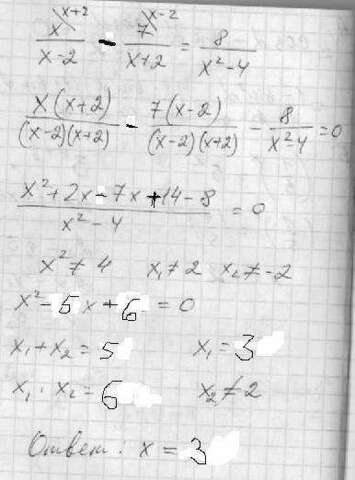 x^(x+2)/(x-2) - 7^(x-2)/(x+2) = 8/(x²-4)
x(x+2)/((x-2)(x+2)) - 7(x-2)/((x-2)(x+2)) - 8/(x²-4) = 0
(x²+2x-7x+14-8)/(x²-4) = 0
x² ≠ 4   x₁ ≠ 2   x₂ ≠ -2
x² - 5x + 6 = 0
x₁ + x₂ = 5   x₁ = 3
x₁ · x₂ = 6   x₂ ≠ 2
Ответ: x = 3